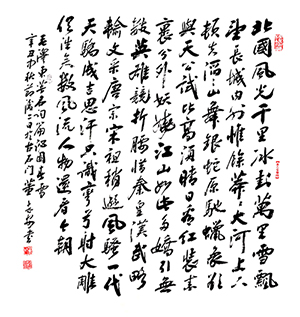 北國風光千里冰封萬里雪飄
望長城内外惟餘莽莽大河上下
頓失滔滔山舞銀蛇原馳蠟象欲
與天公試比高須晴日看紅裝素
裹分外妖嬈江山如此多嬌引無
數英雄競折腰惜秦皇漢武略
輸文采唐宗宋祖稍遜風騷一代
天驕成吉思汗只識彎弓射大雕
俱往矣數風流人物還看今朝
毛澤東 沁園春雪
辛丑年秋 石門